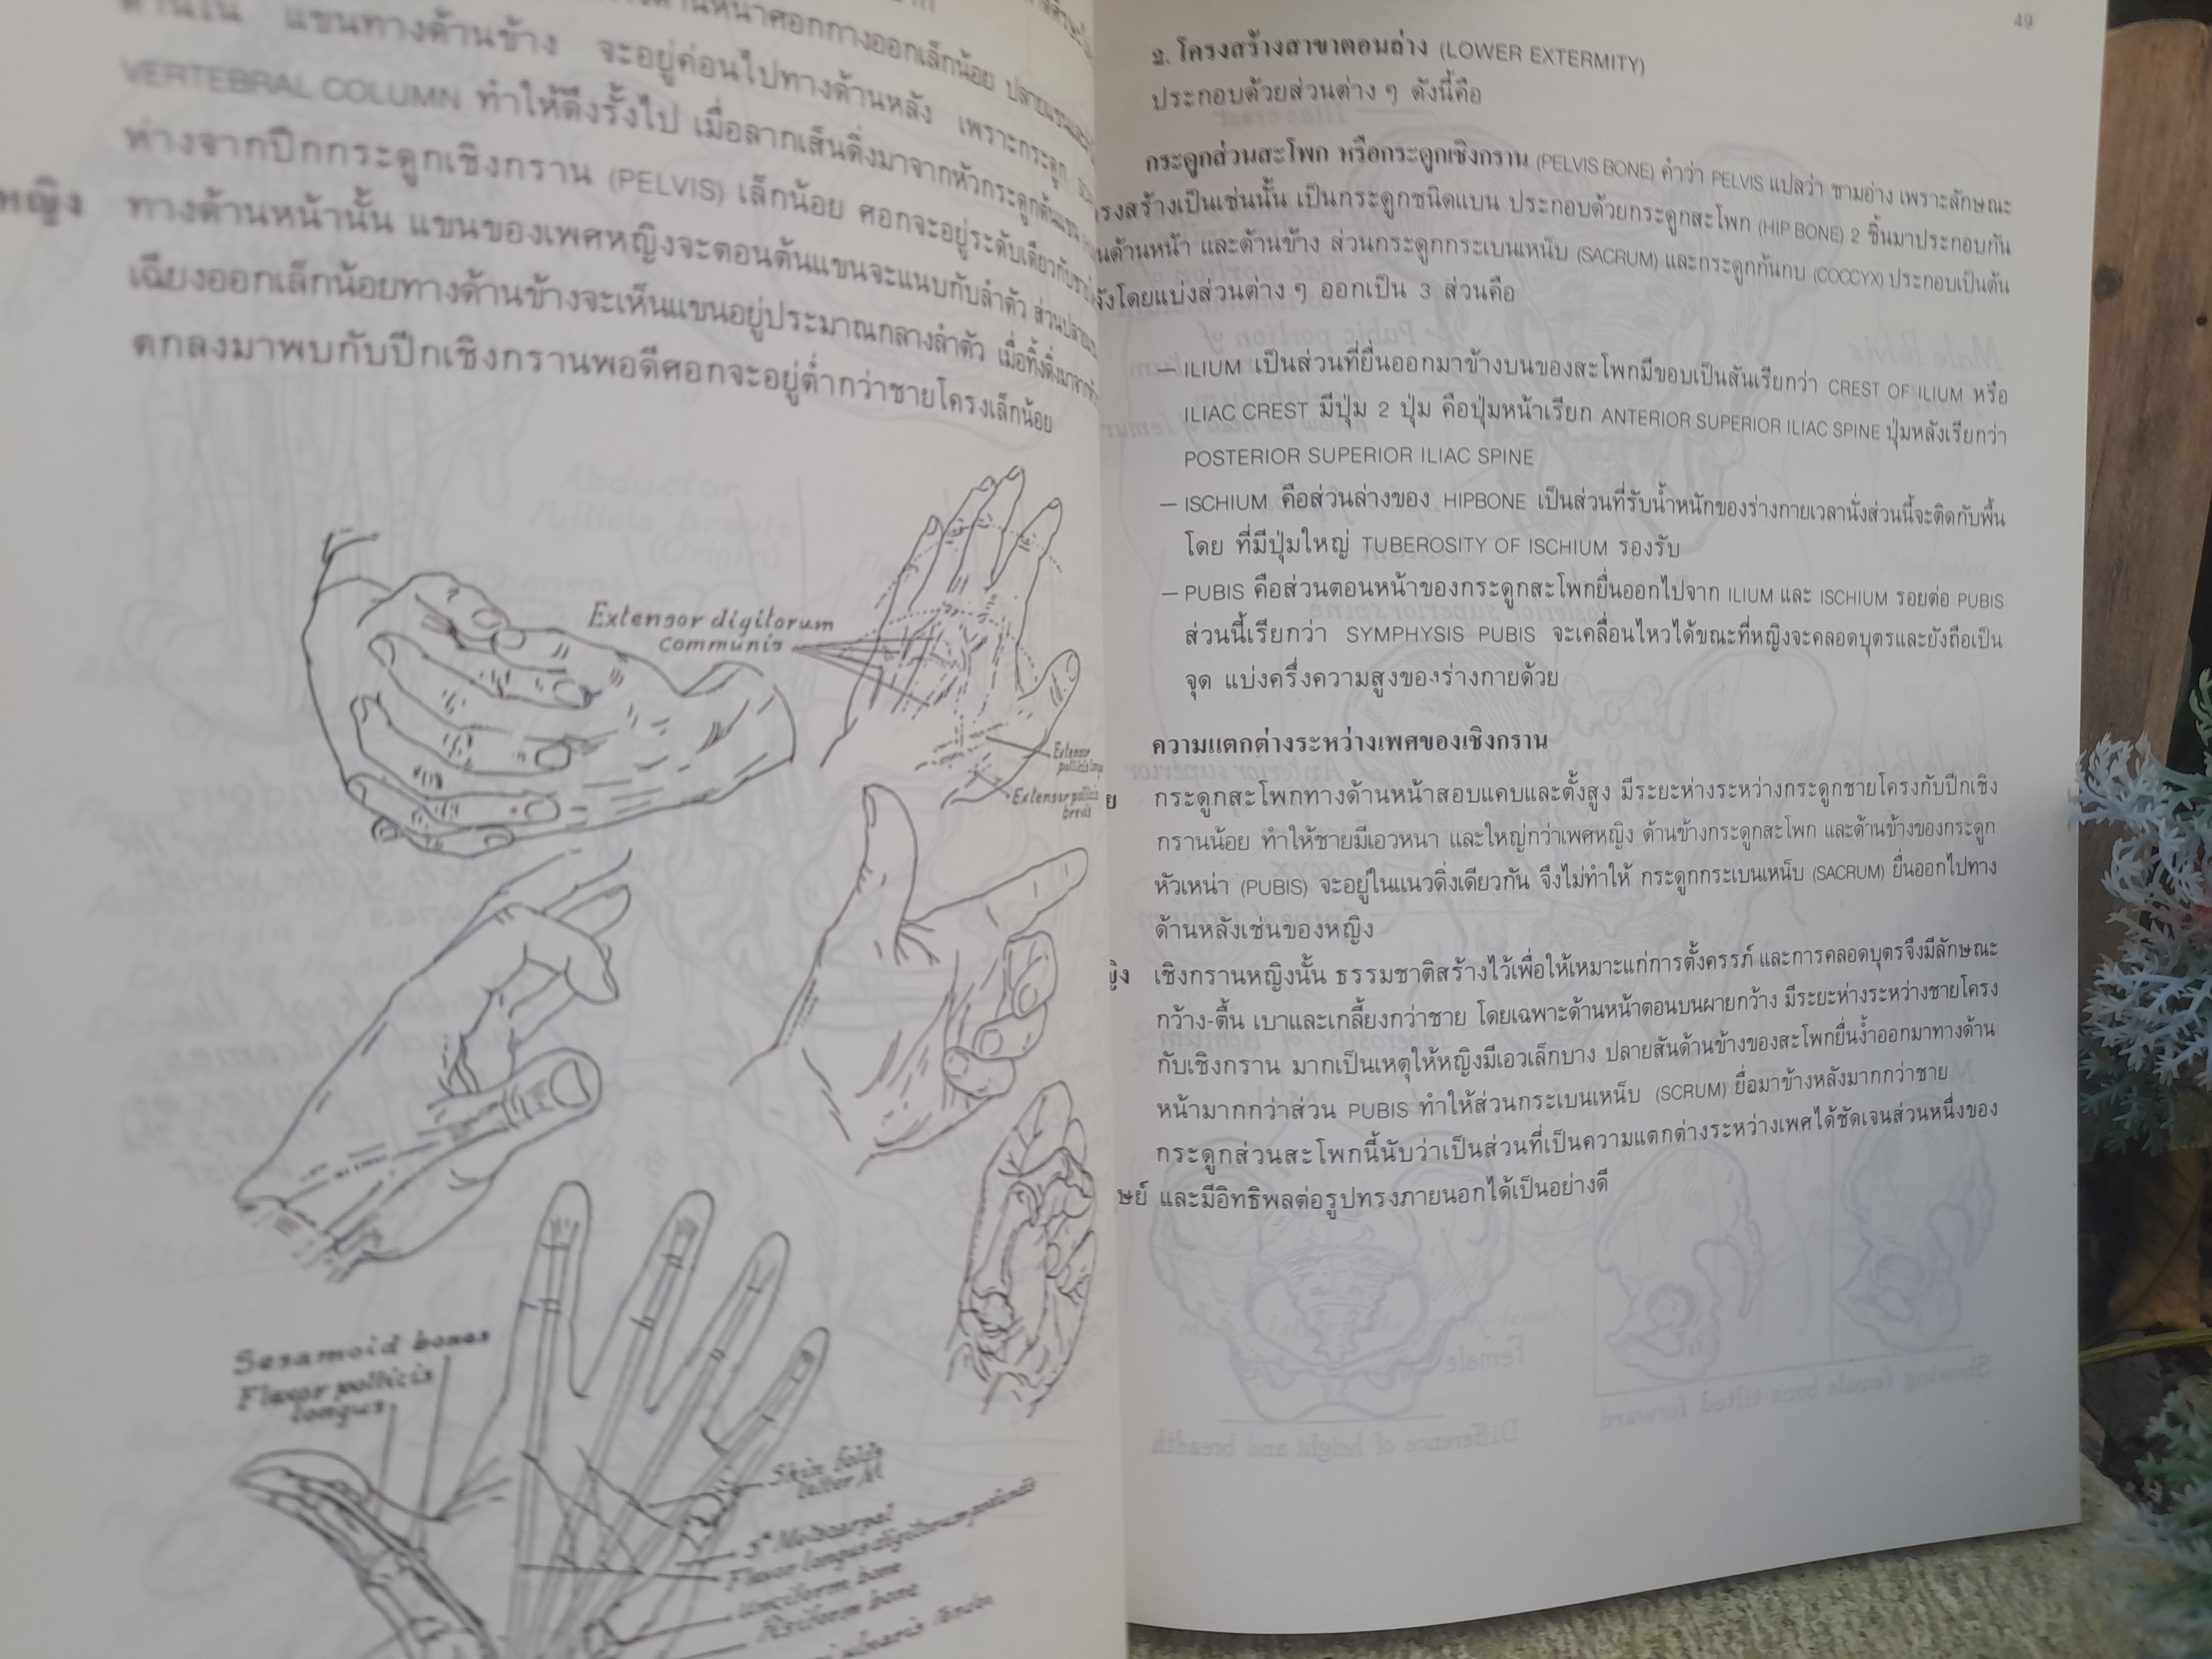 แขนทางด้านข้าง จะอยู่ค่อนไปทางด้านหลัง เพราะกระดูก
VERTEBRAL COLUMN ทำให้ดึงรั้งไป เมื่อลากเส้นดิ่งมาจากหัวกระดูกต้นแขน
ห่างจากปีกกระดูกเชิงกราน (PELVIS) เล็กน้อย ศอกจะอยู่ระดับเดียวกับ
หญิง ทางด้านหน้านั้น แขนของเพศหญิงจะตอนต้นแขนจะแนบกับลำตัว
เฉียงออกเล็กน้อยทางด้านข้างจะเห็นแขนอยู่ประมาณกลางลำตัว เมื่อทิ้งดิ่งมาจาก
ตกลงมาพบกับปีกเชิงกรานพอดีศอกจะอยู่ต่ำกว่าชายโครงเล็กน้อย
Extensor digitorum
communis
Extensor
pollicis
Extensor pollicis
brevis
Sesamoid bones
Flexor pollicis
longus
Skin folds
letter M
Metacarpal
Flexor longus digitorum
Unciform bone
Pisiform bone
49
2. โครงสร้างสาขาตอนล่าง (LOWER EXTERMITY)
ประกอบด้วยส่วนต่าง ๆ ดังนี้คือ
กระดูกส่วนสะโพก หรือกระดูกเชิงกราน (PELVIS BONE) คำว่า PELVIS แปลว่า ชามอ่าง เพราะลักษณะ
รงสร้างเป็นเช่นนั้น เป็นกระดูกชนิดแบน ประกอบด้วยกระดูกสะโพก (HIP BONE) 2 ชิ้นมาประกอบกัน
นด้านหน้า และด้านข้าง ส่วนกระดูกกระเบนเหน็บ (SACRUM) และกระดูกก้นกบ (COCCYX) ประกอบเป็นต้น
ังโดยแบ่งส่วนต่าง ๆ ออกเป็น 3 ส่วนคือ
– ILIUM เป็นส่วนที่ยื่นออกมาข้างบนของสะโพกมีขอบเป็นสันเรียกว่า CREST OF ILIUM หรือ
ILIAC CREST มีปุ่ม 2 ปุ่ม คือปุ่มหน้าเรียก ANTERIOR SUPERIOR ILIAC SPINE ปุ่มหลังเรียกว่า
POSTERIOR SUPERIOR ILIAC SPINE
– ISCHIUM คือส่วนล่างของ HIPBONE เป็นส่วนที่รับน้ำหนักของร่างกายเวลานั่งส่วนนี้จะติดกับพื้น
โดย ที่มีปุ่มใหญ่ TUBEROSITY OF ISCHIUM รองรับ
– PUBIS คือส่วนตอนหน้าของกระดูกสะโพกยื่นออกไปจาก ILIUM และ ISCHIUM รอยต่อ PUBIS
ส่วนนี้เรียกว่า SYMPHYSIS PUBIS จะเคลื่อนไหวได้ขณะที่หญิงจะคลอดบุตรและยังถือเป็น
จุด แบ่งครึ่งความสูงของร่างกายด้วย
ความแตกต่างระหว่างเพศของเชิงกราน
ย กระดูกสะโพกทางด้านหน้าสอบแคบและตั้งสูง มีระยะห่างระหว่างกระดูกชายโครงกับปีกเชิง
กรานน้อย ทำให้ชายมีเอวหนา และใหญ่กว่าเพศหญิง ด้านข้างกระดูกสะโพก และด้านข้างของกระดูก
หัวเหน่า (PUBIS) จะอยู่ในแนวดิ่งเดียวกัน จึงไม่ทำให้ กระดูกกระเบนเหน็บ (SACRUM) ยื่นออกไปทาง
ด้านหลังเช่นของหญิง
ญิง เชิงกรานหญิงนั้น ธรรมชาติสร้างไว้เพื่อให้เหมาะแก่การตั้งครรภ์ และการคลอดบุตรจึงมีลักษณะ
กว้าง-ตื้น เบาและเกลี้ยงกว่าชาย โดยเฉพาะด้านหน้าตอนบนผายกว้าง มีระยะห่างระหว่างชายโครง
กับเชิงกราน มากเป็นเหตุให้หญิงมีเอวเล็กบาง ปลายสันด้านข้างของสะโพกยื่นง้ำออกมาทางด้าน
หน้ามากกว่าส่วน PUBIS ทำให้ส่วนกระเบนเหน็บ (SCRUM) ยื่อมาข้างหลังมากกว่าชาย
กระดูกส่วนสะโพกนี้นับว่าเป็นส่วนที่เป็นความแตกต่างระหว่างเพศได้ชัดเจนส่วนหนึ่งของ
ษย์ และมีอิทธิพลต่อรูปทรงภายนอกได้เป็นอย่างดี